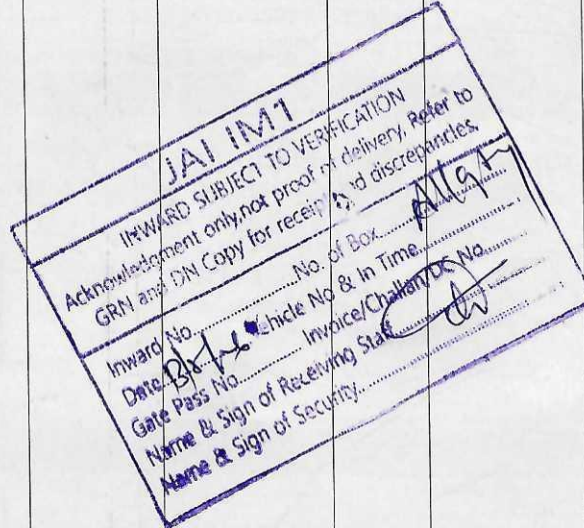 JAI IM1
INWARD SUBJECT TO VERIFICATION
Acknowledgment only, not proof of delivery, Refer to
GRN and DN Copy for receipt and discrepancies.
Inward No. No. of Box
Date Vehicle No & In Time
Gate Pass No. Invoice/Challan/DC No
Name & Sign of Receiving Staff
Name & Sign of Security